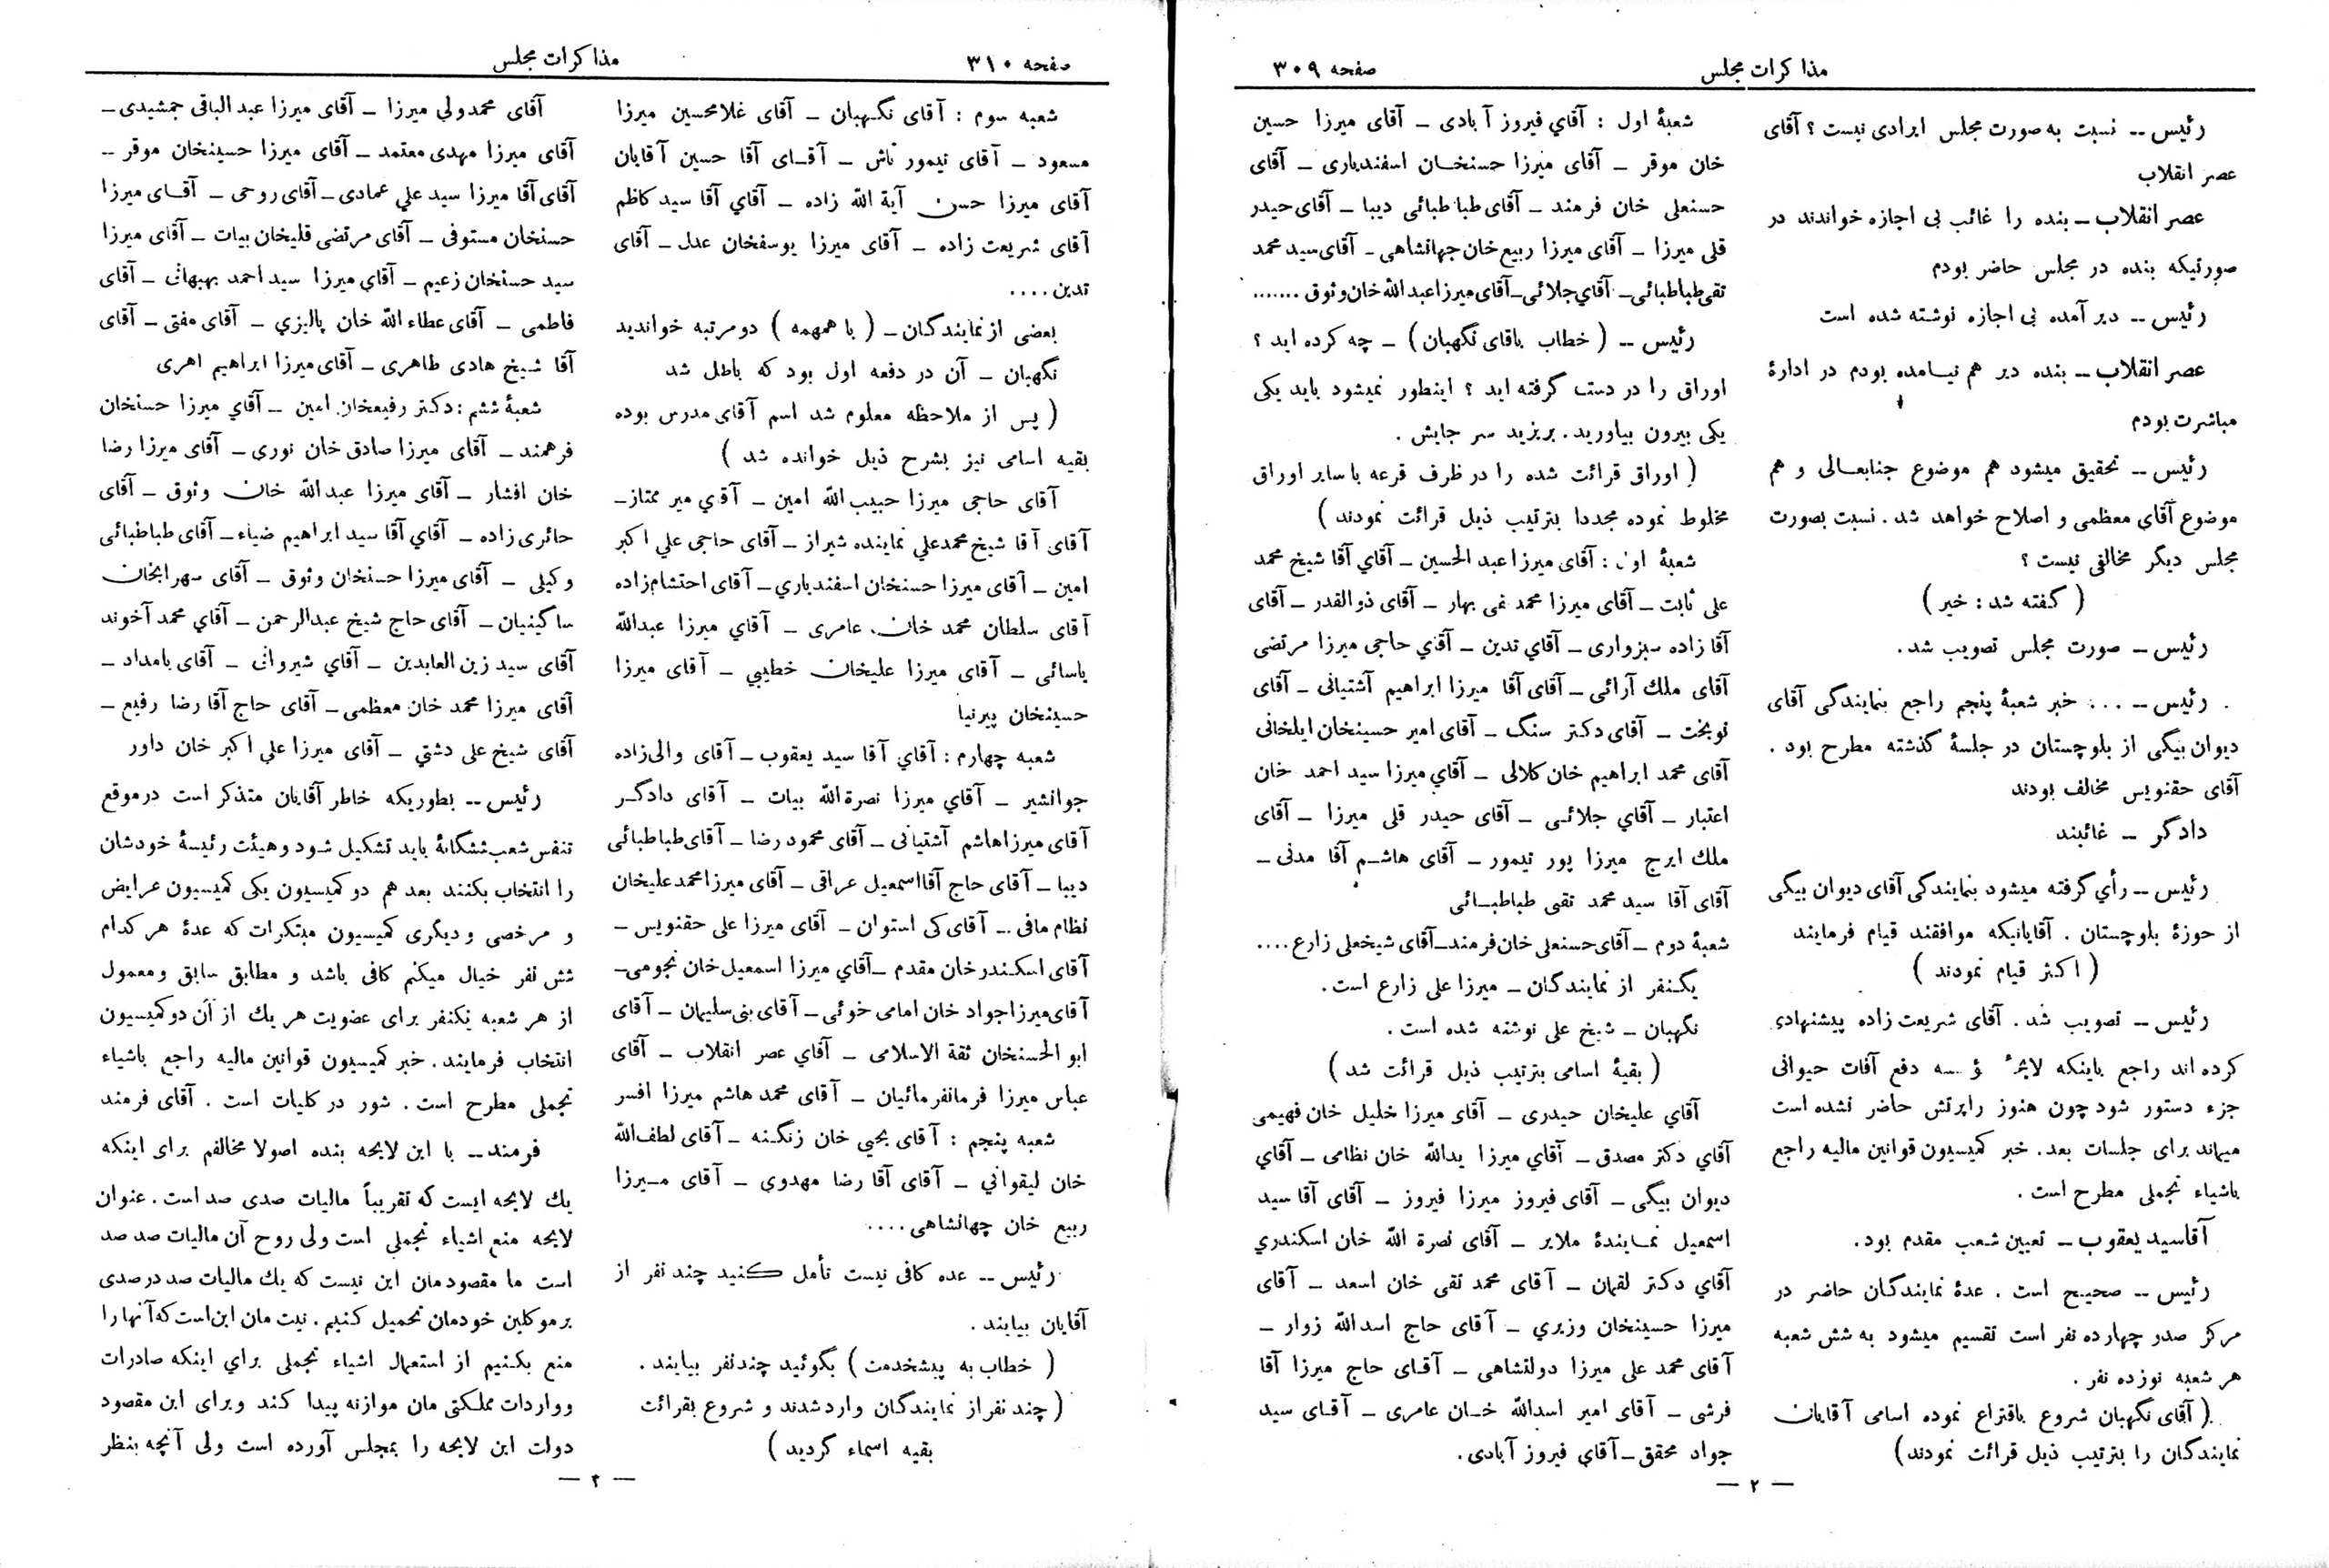 مذاکرات مجلس
صفحه ۳۰۹
رئیس -- نسبت به صورت مجلس ایرادی نیست ؟ آقای
عصر انقلاب
عصر انقلاب -- بنده را غائب بی اجازه خواندند در
صورتیکه بنده در مجلس حاضر بودم
رئیس -- دیر آمده بی اجازه نوشته شده است
عصر انقلاب -- بنده دیر هم نیامده بودم در ادارهٔ
مباشرت بودم
رئیس -- تحقیق میشود هم موضوع جنابعالی و هم
موضوع آقای معظمی و اصلاح خواهد شد . نسبت بصورت
مجلس دیگر مخالفی نیست ؟
( گفته شد : خیر )
رئیس -- صورت مجلس تصویب شد .
رئیس -- ... خبر شعبهٔ پنجم راجع بنمایندگی آقای
دیوان بیگی از بلوچستان در جلسهٔ گذشته مطرح بود .
آقای حقنویس مخالف بودند
دادگر -- غائبند
رئیس -- رأی گرفته میشود بنمایندگی آقای دیوان بیگی
از حوزهٔ بلوچستان . آقایانیکه موافقند قیام فرمایند
( اکثر قیام نمودند )
رئیس -- تصویب شد . آقای شریعت زاده پیشنهادی
کرده اند راجع باینکه لایحهٔ دفع آفات حیوانی
جزء دستور شود چون هنوز راپرتش حاضر نشده است
میماند برای جلسات بعد . خبر کمیسیون قوانین مالیه راجع
باشیاء تجملی مطرح است .
آقاسید یعقوب -- تعیین شعب مقدم بود .
رئیس -- صحیح است . عدهٔ نمایندگان حاضر در
مرکز صدر چهارده نفر است تقسیم میشود به شش شعبه
هر شعبه نوزده نفر .
( آقای نگهبان شروع باقتراع نموده اسامی آقایان
نمایندگان را بترتیب ذیل قرائت نمودند )
شعبهٔ اول : آقای فیروز آبادی -- آقای میرزا حسین
خان موقر -- آقای میرزا حسنخان اسفندیاری -- آقای
حسنعلی خان فرمند -- آقای طباطبائی دیبا -- آقای حیدر
قلی میرزا -- آقای میرزا ربیع خان جهانشاهی -- آقای سید محمد
تقی طباطبائی -- آقای جلائی -- آقای میرزا عبدالله خان وثوق .......
رئیس -- ( خطاب باقای نگهبان ) -- چه کرده اید ؟
اوراق را در دست گرفته اید ؟ اینطور نمیشود باید یکی
یکی بیرون بیاورید . بریزید سر جایش .
( اوراق قرائت شده را در ظرف قرعه با سایر اوراق
مخلوط نموده مجددا بترتیب ذیل قرائت نمودند )
شعبهٔ اول : آقای میرزا عبدالحسین -- آقای آقا شیخ محمد
علی ثابت -- آقای میرزا محمد نمی بهار -- آقای ذوالقدر -- آقای
آقا زاده سبزواری -- آقای تدین -- آقای حاجی میرزا مرتضی
آقای ملك آرائی -- آقای آقا میرزا ابراهیم آشتیانی -- آقای
نوبخت -- آقای دکتر سنگ -- آقای امیر حسینخان ایلخانی
آقای محمد ابراهیم خان کلالی -- آقای میرزا سید احمد خان
اعتبار -- آقای جلائی -- آقای حیدر قلی میرزا -- آقای
ملك ایرج میرزا پور تیمور -- آقای هاشم آقا مدنی --
آقای آقا سید محمد تقی طباطبائی
شعبهٔ دوم -- آقای حسنعلی خان فرمند -- آقای شیخعلی زارع ....
یکنفر از نمایندگان -- میرزا علی زارع است .
نگهبان -- شیخ علی نوشته شده است .
( بقیهٔ اسامی بترتیب ذیل قرائت شد )
آقای علیخان حیدری -- آقای میرزا خلیل خان فهیمی
آقای دکتر مصدق -- آقای میرزا یدالله خان نظامی -- آقای
دیوان بیگی -- آقای فیروز میرزا فیروز -- آقای آقا سید
اسمعیل نمایندهٔ ملایر -- آقای نصرة الله خان اسکندری
آقای دکتر لقمان -- آقای محمد تقی خان اسعد -- آقای
میرزا حسینخان وزیری -- آقای حاج اسدالله زوار --
آقای محمد علی میرزا دولتشاهی -- آقای حاج میرزا آقا
فرشی -- آقای امیر اسدالله خان عامری -- آقای سید
جواد محقق -- آقای فیروز آبادی .
— ۲ —
مذاکرات مجلس
صفحه ۳۱۰
شعبه سوم : آقای نگهبان -- آقای غلامحسین میرزا
مسعود -- آقای تیمور تاش -- آقای آقا حسین آقایان
آقای میرزا حسن آیة الله زاده -- آقای آقا سید کاظم
آقای شریعت زاده -- آقای میرزا یوسفخان عدل -- آقای
تدین ....
بعضی از نمایندگان -- ( با همهمه ) دو مرتبه خواندید
نگهبان -- آن در دفعه اول بود که باطل شد
( پس از ملاحظه معلوم شد اسم آقای مدرس بوده
بقیه اسامی نیز بشرح ذیل خوانده شد )
آقای حاجی میرزا حبیب الله امین -- آقای میر ممتاز --
آقای آقا شیخ محمدعلی نماینده شیراز -- آقای حاجی علی اکبر
امین -- آقای میرزا حسنخان اسفندیاری -- آقای احتشام زاده
آقای سلطان محمد خان عامری -- آقای میرزا عبدالله
یاسائی -- آقای میرزا علیخان خطیبی -- آقای میرزا
حسینخان پیرنیا
شعبه چهارم : آقای آقا سید یعقوب -- آقای والی زاده
جوانشیر -- آقای میرزا نصرة الله بیات -- آقای دادگر
آقای میرزا هاشم آشتیانی -- آقای محمود رضا -- آقای طباطبائی
دیبا -- آقای حاج آقا اسمعیل عراقی -- آقای میرزا محمد علیخان
نظام مافی -- آقای کی استوان -- آقای میرزا علی حقنویس --
آقای اسکندر خان مقدم -- آقای میرزا اسمعیل خان نجومی --
آقای میرزا جواد خان امامی خوئی -- آقای بنی سلیمان -- آقای
ابو الحسنخان ثقة الاسلامی -- آقای عصر انقلاب -- آقای
عباس میرزا فرمانفرمائیان -- آقای محمد هاشم میرزا افسر
شعبه پنجم : آقای یحیی خان زنگنه -- آقای لطف الله
خان لیقوانی -- آقای آقا رضا مهدوی -- آقای میرزا
ربیع خان جهانشاهی ....
رئیس -- عده کافی نیست تأمل کنید چند نفر از
آقایان بیایند .
( خطاب به پیشخدمت ) بگوئید چند نفر بیایند .
( چند نفر از نمایندگان وارد شدند و شروع بقرائت
بقیه اسماء گردید )
آقای محمدولی میرزا -- آقای میرزا عبدالباقی جمشیدی --
آقای میرزا مهدی معتمد -- آقای میرزا حسینخان موقر --
آقای آقا میرزا سید علی عمادی -- آقای روحی -- آقای میرزا
حسنخان مستوفی -- آقای مرتضی قلیخان بیات -- آقای میرزا
سید حسنخان زعیم -- آقای میرزا سید احمد بهبهانی -- آقای
فاطمی -- آقای عطاء الله خان پالیزی -- آقای مفتی -- آقای
آقا شیخ هادی طاهری -- آقای میرزا ابراهیم اهری
شعبهٔ ششم : دکتر رفیعخان امین -- آقای میرزا حسنخان
فرهمند -- آقای میرزا صادق خان نوری -- آقای میرزا رضا
خان افشار -- آقای میرزا عبدالله خان وثوق -- آقای
حائری زاده -- آقای آقا سید ابراهیم ضیاء -- آقای طباطبائی
وکیلی -- آقای میرزا حسنخان وثوق -- آقای سهرابخان
ساگینیان -- آقای حاج شیخ عبدالرحمن -- آقای محمد آخوند
آقای سید زین العابدین -- آقای شیروانی -- آقای بامداد --
آقای میرزا محمد خان معظمی -- آقای حاج آقا رضا رفیع --
آقای شیخ علی دشتی -- آقای میرزا علی اکبر خان داور
رئیس -- بطوریکه خاطر آقایان متذکر است در موقع
تنفس شعب ششگانهٔ باید تشکیل شود و هیئت رئیسهٔ خودشان
را انتخاب بکنند بعد هم دو کمیسیون یکی کمیسیون عرایض
و مرخصی و دیگری کمیسیون مبتکرات که عدهٔ هر کدام
شش نفر خیال میکنم کافی باشد و مطابق سابق و معمول
از هر شعبه یکنفر برای عضویت هر یك از آن دو کمیسیون
انتخاب فرمایند . خبر کمیسیون قوانین مالیه راجع باشیاء
تجملی مطرح است . شور در کلیات است . آقای فرمند
فرمند -- با این لایحه بنده اصولا مخالفم برای اینکه
یك لایحه ایست که تقریباً مالیات صدی صد است . عنوان
لایحه منع اشیاء تجملی است ولی روح آن مالیات صد صد
است ما مقصودمان این نیست که یك مالیات صد در صدی
بر موکلین خودمان تحمیل کنیم . نیت مان این است که آنها را
منع بکنیم از استعمال اشیاء تجملی برای اینکه صادرات
و واردات مملکتی مان موازنه پیدا کند و برای این مقصود
دولت این لایحه را بمجلس آورده است ولی آنچه بنظر